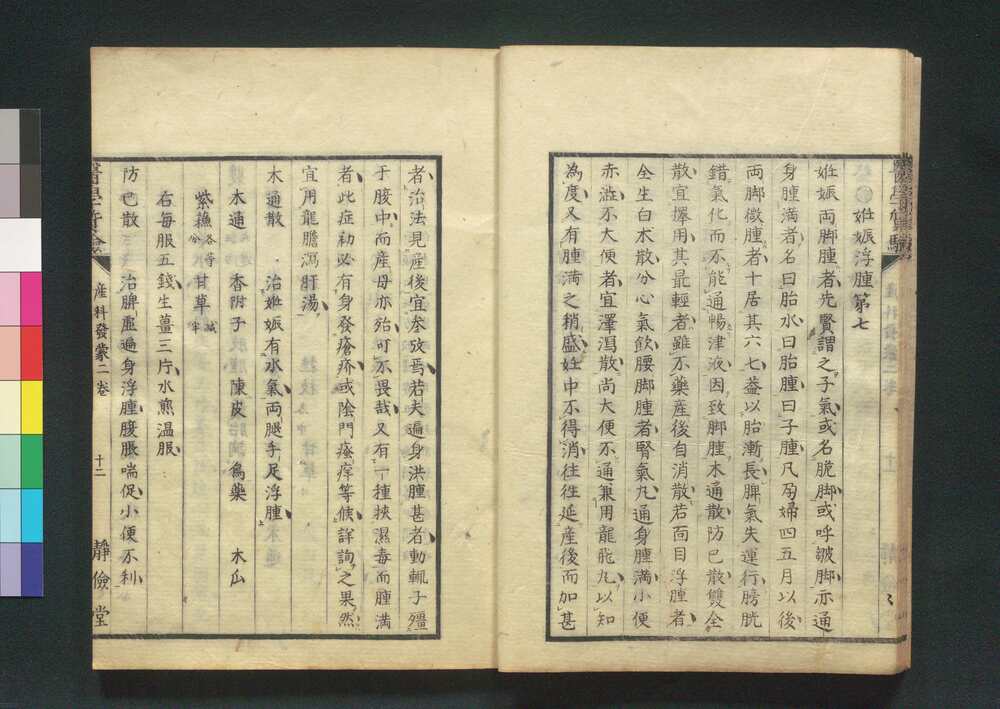 姙娠浮腫第七
姙娠両脚腫者先賢謂之子氣或名脆脚或呼皺脚亦通
身腫満者名曰胎水曰胎腫曰子腫凡孕婦四五月以後
両脚微腫者十居其六七盖以胎漸長脾氣失運行膀胱
錯氣化而不能通暢津液因致脚腫木通散防已散雙全
散宜擇用其最輕者雖不藥産後自消散若面目浮腫者
全生白木散分心氣飲腰脚腫者腎氣丸通身腫満小便
赤澁不大便者宜澤瀉散尚大便不通兼用龍飛丸以知
為度又有腫満之稍盛姙中不得消往往延産後而加甚
者治法見産後宜参攷焉若夫遍身洪腫甚者動輒子殭
于腹中而産母亦殆可不畏哉又有一種挟濕毒而腫満
者此症初必有身發瘡疥或陰門瘙痒等候詳詢之果然
宜用龍膽瀉肝湯
木通散 治姙娠有水氣両腿手足浮腫
木通 香附子 陳皮 烏藥 木瓜
紫蘓各等分 甘草減半
右毎服五錢生薑三片水煎温服
防已散 治脾虚遍身浮腫腹脹喘促小便不利
産科發蒙二卷 十二 靜儉堂